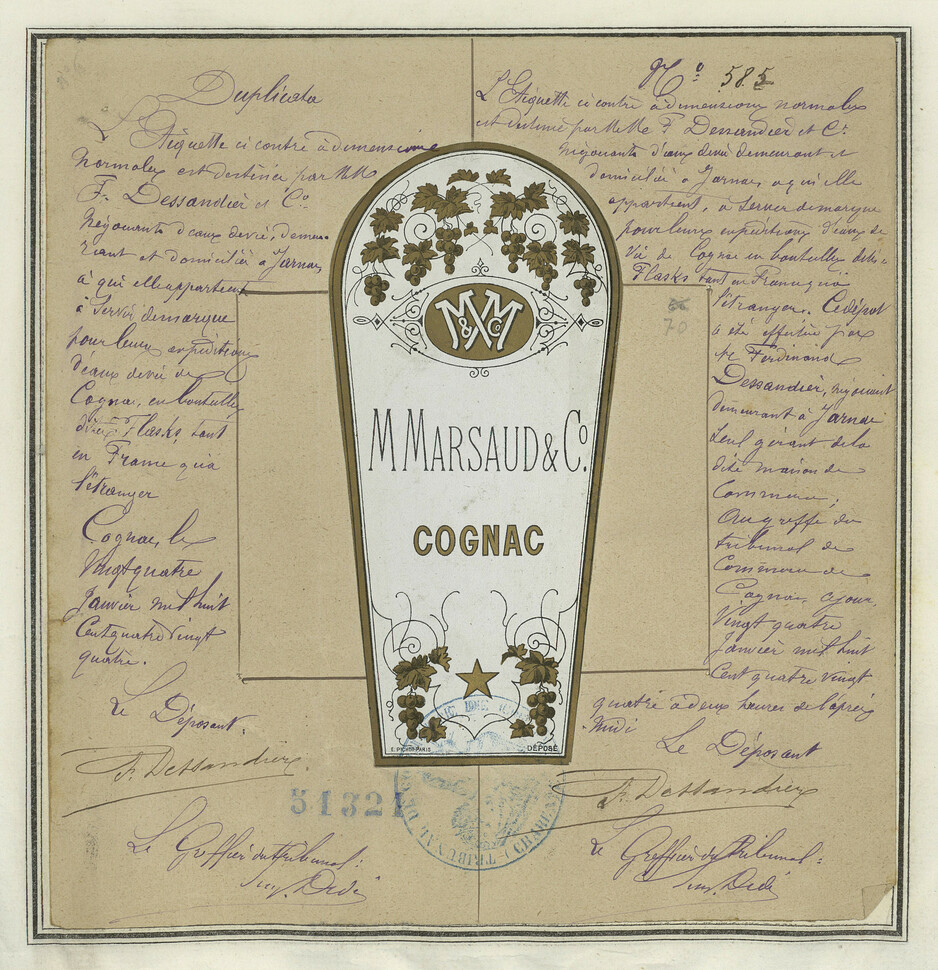 Duplicata
L'Etiquette ci contre à dimensions
normales est destinée par MM
F. Dessandier et Co
Négociants d'eaux de vie, demeu-
rant et domiciliés à Jarnac
à qui elle appartient
à servir de marque
pour leurs expéditions
d'eaux de vie de
Cognac, en bouteilles
dites Flasks, tant
en France qu'à
l'étranger
Cognac, le
Vingt quatre
Janvier mil huit
Cent quatre vingt
quatre.
Le Déposant.
F. Dessandier
Le Greffier du Tribunal:
No 585
L'Etiquette ci contre à dimensions normales
est destinée par MM F. Dessandier et Co
Négociants d'eaux de vie demeurant et
domiciliés à Jarnac, à qui elle
appartient, à servir de marque
pour leurs expéditions d'eaux de
vie de Cognac en bouteilles dites
Flasks tant en France qu'à
l'étranger. Ce dépôt
a été effectué par
Mr Ferdinand
Dessandier, négociant
demeurant à Jarnac
seul gérant de la
dite maison de
Commerce,
Au greffe du
tribunal de
Commerce de
Cognac, ce jour,
Vingt quatre
Janvier mil huit
Cent quatre vingt
quatre à deux heures de l'après
midi
Le Déposant
F. Dessandier
Le Greffier du Tribunal:
70
M&MCo
M MARSAUD & Co.
COGNAC
E. PICHOT PARIS
DÉPOSÉ
51321